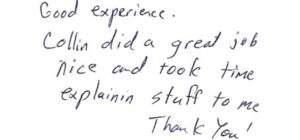 Good experience.
Collin did a great job
nice and took time
explainin stuff to me
Thank You!